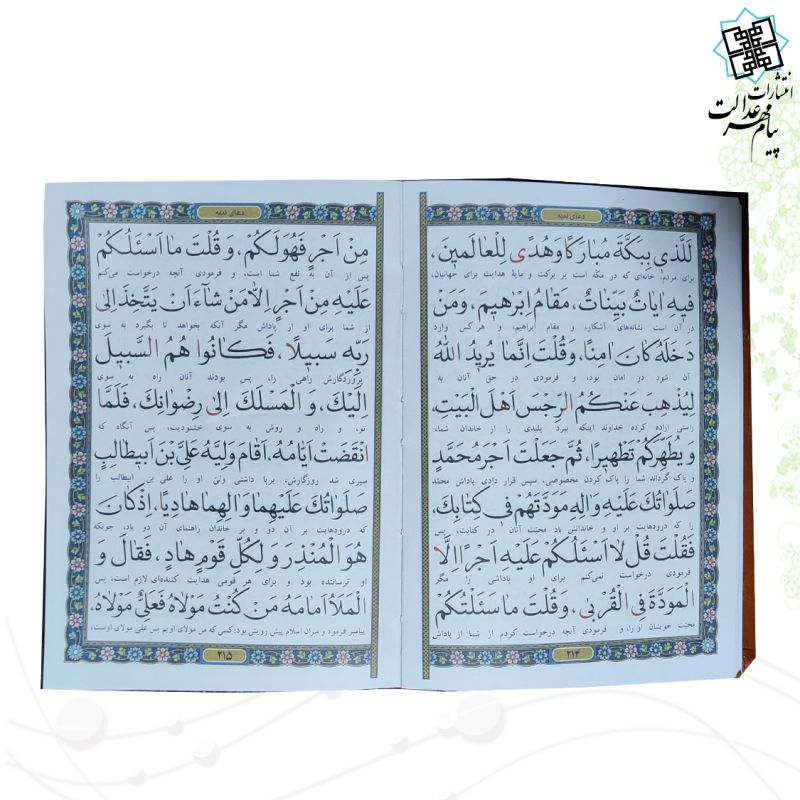 انتشارات
پیام مهر عدالت
دعای ندبه
لَلَّذی بِبَكَّةَ مُبارَكًا وَهُدًی لِلْعالَمینَ،
برای مردم؛ خانه‌ای که در مکّه است پر برکت و مایهٔ هدایت برای جهانیان،
فیهِ ایاتٌ بَیِّناتٌ، مَقامُ اِبْرهیمَ، وَمَنْ
در آن است نشانه‌های آشکار، و مقام ابراهیم، و هر کس وارد
دَخَلَهُ كانَ امِنًا، وَقُلْتَ اِنَّما یُریدُ اللهُ
آن شود در امان بود، و فرمودی در حق آنان به
لِیُذْهِبَ عَنْكُمُ الرِّجْسَ اَهْلَ الْبَیْتِ،
راستی اراده کرده خداوند اینکه ببرد پلیدی را از خاندان شما،
وَ یُطَهِّرَكُمْ تَطْهیرًا، ثُمَّ جَعَلْتَ اَجْرَ مُحَمَّدٍ
و پاک گرداند شما را پاک کردن مخصوصی، سپس قرار دادی پاداش محمّد
صَلَواتُكَ عَلَیْهِ وَالِهِ مَوَدَّتَهُمْ فی كِتابِكَ،
را که درودهایت بر او و خاندانش باد محبّت آنان در کتابت، پس
فَقُلْتَ قُلْ لا اَسْئَلُكُمْ عَلَیْهِ اَجْرًا اِلَّا
فرمودی درخواست نمی‌کنم برای او پاداشی را مگر
الْمَوَدَّةَ فِی الْقُرْبی، وَقُلْتَ ما سَئَلْتُكُمْ
محبّت خویشان او را، و فرمودی آنچه درخواست کردم از شما از پاداش
۲۱۴
دعای ندبه
مِنْ اَجْرٍ فَهُوَلَكُمْ، وَ قُلْتَ ما اَسْئَلُكُمْ
پس از آن به نفع شما است، و فرمودی آنچه درخواست می‌کنم
عَلَیْهِ مِنْ اَجْرٍ اِلاَّ مَنْ شآءَ اَنْ یَتَّخِذَ اِلی
از شما برای او از پاداش مگر آنکه بخواهد تا بگیرد به سوی
رَبِّهِ سَبیلًا، فَكانُوا هُمُ السَّبیلَ
پروردگارش راهی را، پس بودند آنان راه به سوی
اِلَیْكَ، وَ الْمَسْلَكَ اِلی رِضْوانِكَ، فَلَمَّا
تو، و راه و روش به سوی خشنودیت، پس آنگاه که
انْقَضَتْ اَیَّامُهُ، اَقامَ وَلِیَّهُ عَلِیَّ بْنَ اَبیطالِبٍ
سپری شد روزگارش، برپا داشتی ولیّ او را علی بن ابیطالب را
صَلَواتُكَ عَلَیْهِما وَ الِهِما هادِیًا، اِذْكانَ
که درودهایت بر آن دو و بر خاندان راهنمای آن دو باد، چونکه
هُوَ الْمُنْذِرَ وَ لِكُلِّ قَوْمٍ هادٍ، فَقالَ وَ
او ترساننده بود و برای هر قومی هدایت کننده‌ای لازم است، پس
الْمَلَأُ اَمامَهُ مَنْ كُنْتُ مَوْلاهُ فَعَلِیٌّ مَوْلاهُ،
پیامبر فرمود و سران اسلام پیش رویش بود: کسی که من مولای اویم پس علی مولای اوست،
۲۱۵